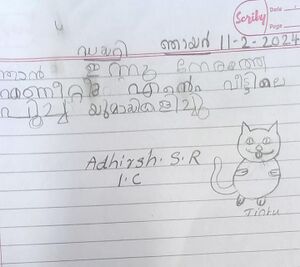 Scribly
Date :
Page :
ഡയറി ഞായർ 11-2-2024
ഞാൻ ഇന്നു നേരത്തെ
എണീറ്റു എന്റെ വീട്ടിലെ
പൂച്ച
Adhirsh. S. R
1. C
Tintu